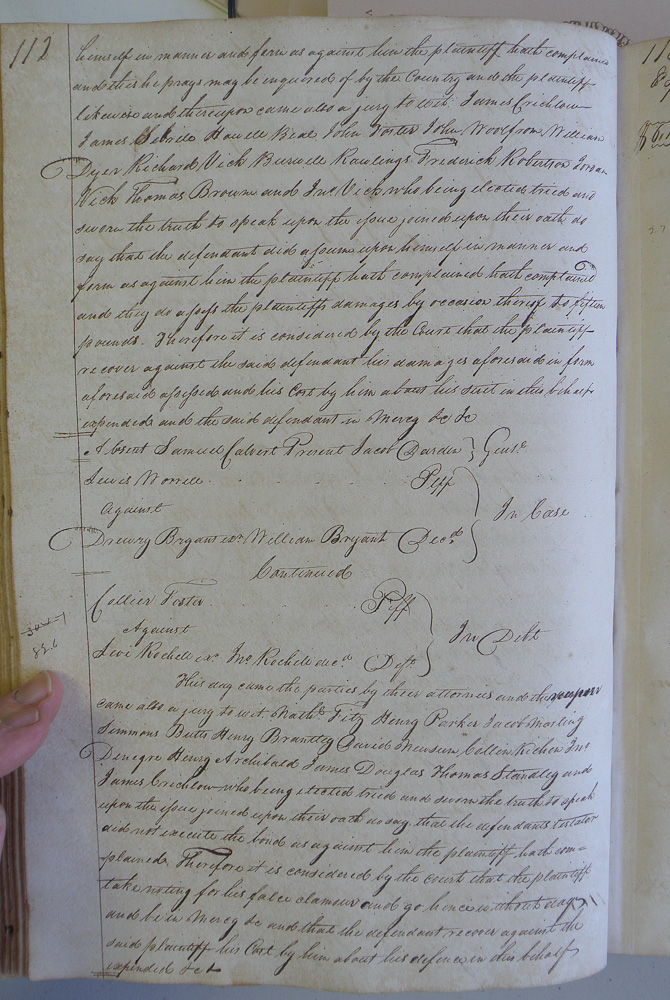 112
himself in manner and form as against him the plaintiff hath complained
and this he prays may be inquired of by the Country and the plaintiff
likewise and thereupon came also a jury to wit James Crichlow
James Howell Beal John Foster John Woolfrom William
Dyer Richard Vick Burwell Rawlings Frederick Robertson Jordan
Vick Thomas Brown and Jno. Vick who being elected tried and
sworn the truth to speak upon the issue joined upon their oath do
say that the defendant did assume upon himself in manner and
form as against him the plaintiff hath complained hath complained
and they do assess the plaintiffs damages by occasion thereof to fifteen
pounds. Therefore it is considered by the Court that the plaintiff
recover against the said defendant his damages aforesaid in form
aforesaid assessed and his Cost by him about his suit in this behalf
expended and the said defendant in Mercy &c &c
Absent Samuel Calvert Present Jacob Darden } Gent.
Lewis Worrell Ptff
against
In Case
Drewry Bryant exr. William Bryant Decd.
Continued
Collier Foster Ptff
Against
In Debt
Levi Rochell exr. Jno. Rochell decd. Deft.
This day came the parties by their attornies and thereupon
came also a jury to wit. Nathl. Fitz Henry Parker Jacob
Simmons Butts Henry Brantley David Collin Kichen Jno.
Denegre Henry Archibald James Douglas Thomas Standley and
James Crichlow who being elected tried and sworn the truth to speak
upon the issue joined upon their oath do say that the defendants testator
did not execute the bond as against him the plaintiff hath com-
plained. Therefore it is considered by the Court that the plaintiff
take nothing for his false clamour and go hence without day
and be in Mercy &c and that the defendant recover against the
said plaintiff his Cost by him about his defence in this behalf
expended &c